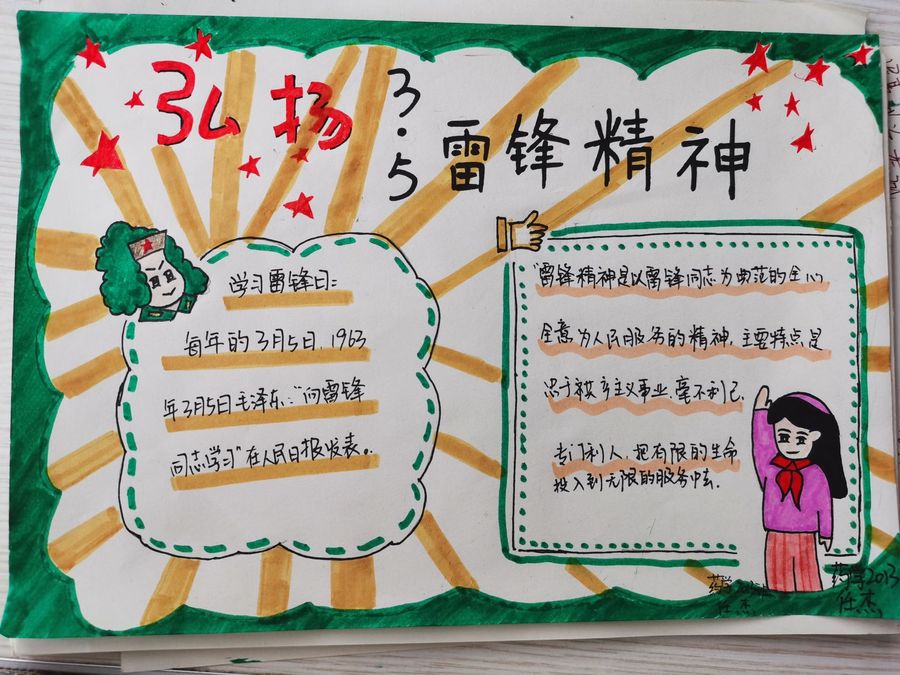 弘扬
3.5
雷锋精神
学习雷锋日:
每年的3月5日.1963
年3月5日毛泽东:"向雷锋
同志学习"在人民日报发表。
"雷锋精神是以雷锋同志为典范的全心
全意为人民服务的精神,主要特点是
忠于共产主义事业.毫不利己.
专门利人,把有限的生命
投入到无限的服务中去.
药学
任杰
药学2013
任杰